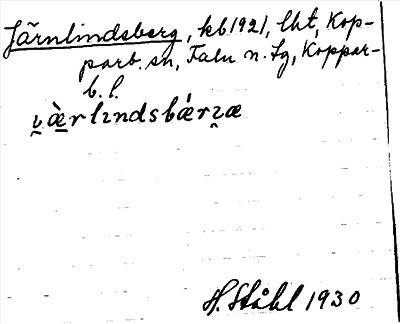 Järnlindsberg, kb 1921, lht, Kop-
parb. sn, Falu n. tg, Koppar-
b. l.
i̯æ̀rlındsbǽri̯æ
H. Ståhl 1930